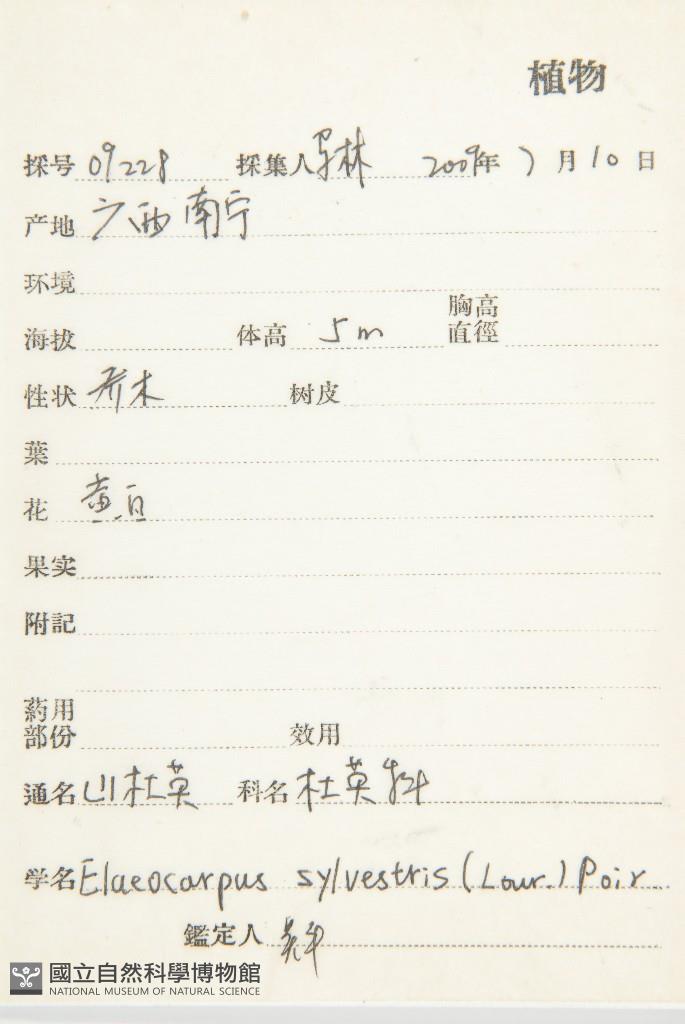 植物
採号 09228 採集人 林 2009年 7 月 10 日
产地 广西南宁
环境
海拔 体高 5m 胸高直徑
性状 乔木 树皮
葉
花 黄白
果实
附記
葯用部份 效用
通名 山杜英 科名 杜英科
学名 Elaeocarpus sylvestris (Lour.) Poir.
鑑定人
國立自然科學博物館
NATIONAL MUSEUM OF NATURAL SCIENCE